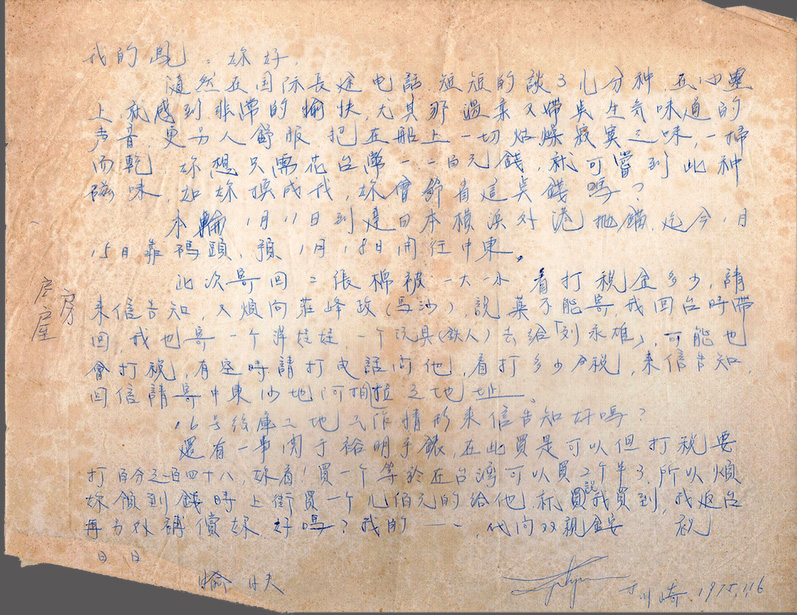 我的鳳：妳好.
隨然在国际長途电話 短短的談了几分钟 在心里
上 就感到非常的愉快，尤其那 又帶 生气味道的
声音 更另人舒服 把在船上一切枯燥寂寞之味，一掃
而乾 妳想只需花台幣一一百元錢，就可嘗到此种
滋味 如妳換成我，妳會節省這 錢嗎？
本輪 1月11日到達日本橫浜外港拋錨，迄今1月
15日靠碼頭，預1月18日開往中東。
此次寄回二張棉被一大一小，看打税金多少，請
來信告知，又煩向莊峰政(馬沙)，說 不能寄，我回台時帶
回，我也寄一个洋娃娃，一个玩具(鉄人)去給「刘永雄」，可能也
會打税，有空時請打电話问他，看打多少 税，來信告知，
回信請寄中東沙地阿拍拉之地址。
16号後庫二地 工作情形來信告知好嗎？
還有一事関于裕明手錶，在此買是可以但打税要
打百分之百四十八，妳看！買一个等於在台湾可以買2个半了，所以煩
妳領到錢時上街買一个几佰元的給他，就說我買到，我返台
再另外 償妳 好嗎？我的一一，代向双親 安 祝
日日
愉快
于川崎，1975,1,16
房屋
房